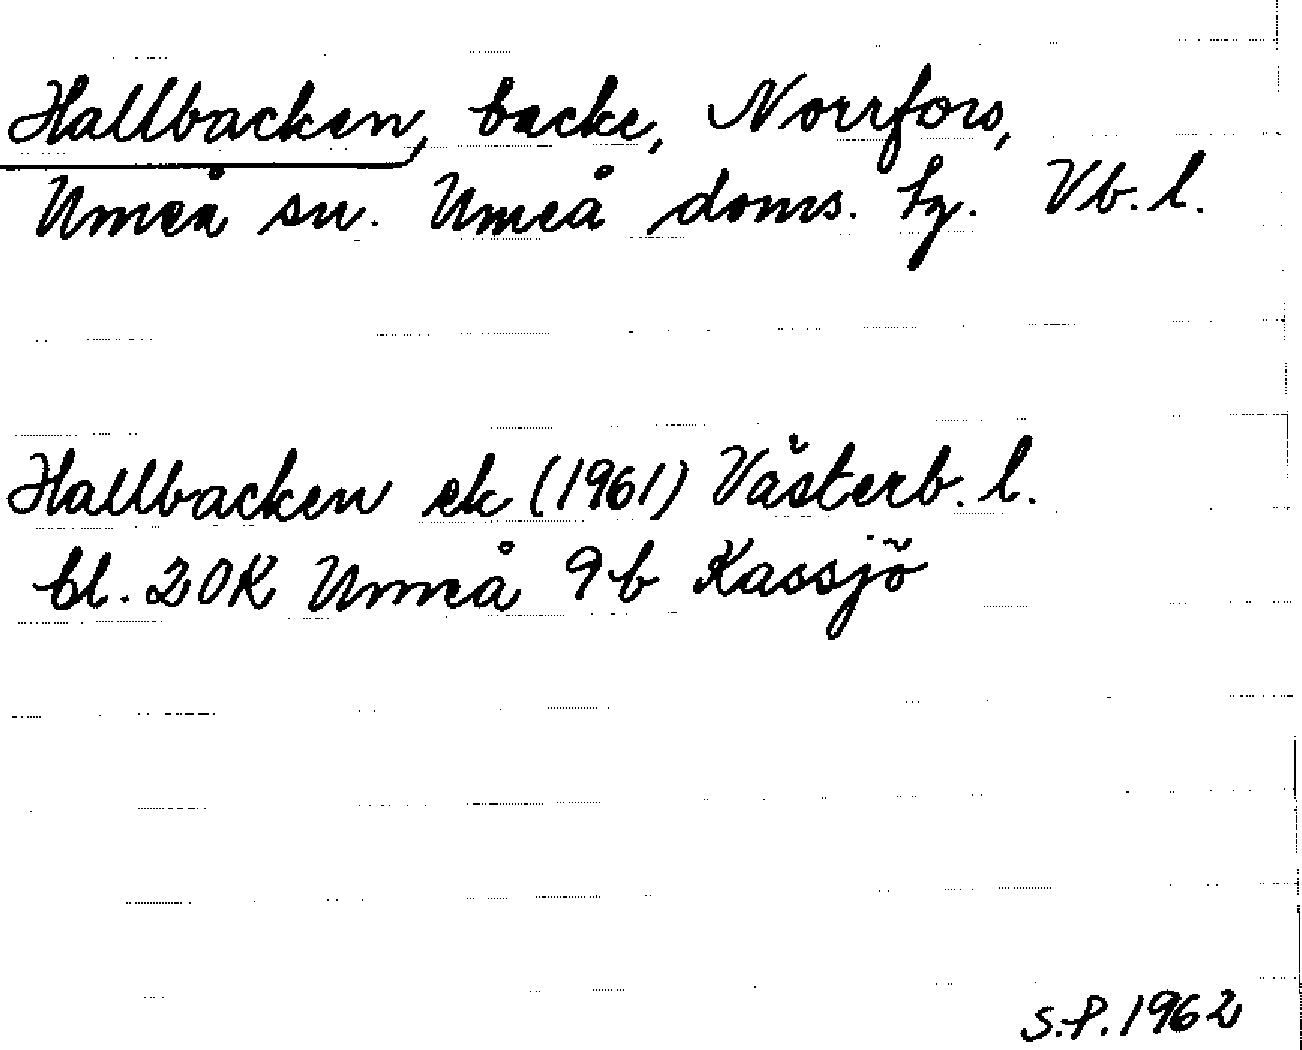 Hallbacken, backe, Norrfors,
Umeå sn. Umeå doms. tg. Vb. l.
Hallbacken ek (1961) Västerb. l.
bl. 20K Umeå 9b Kassjö
S.P. 1962